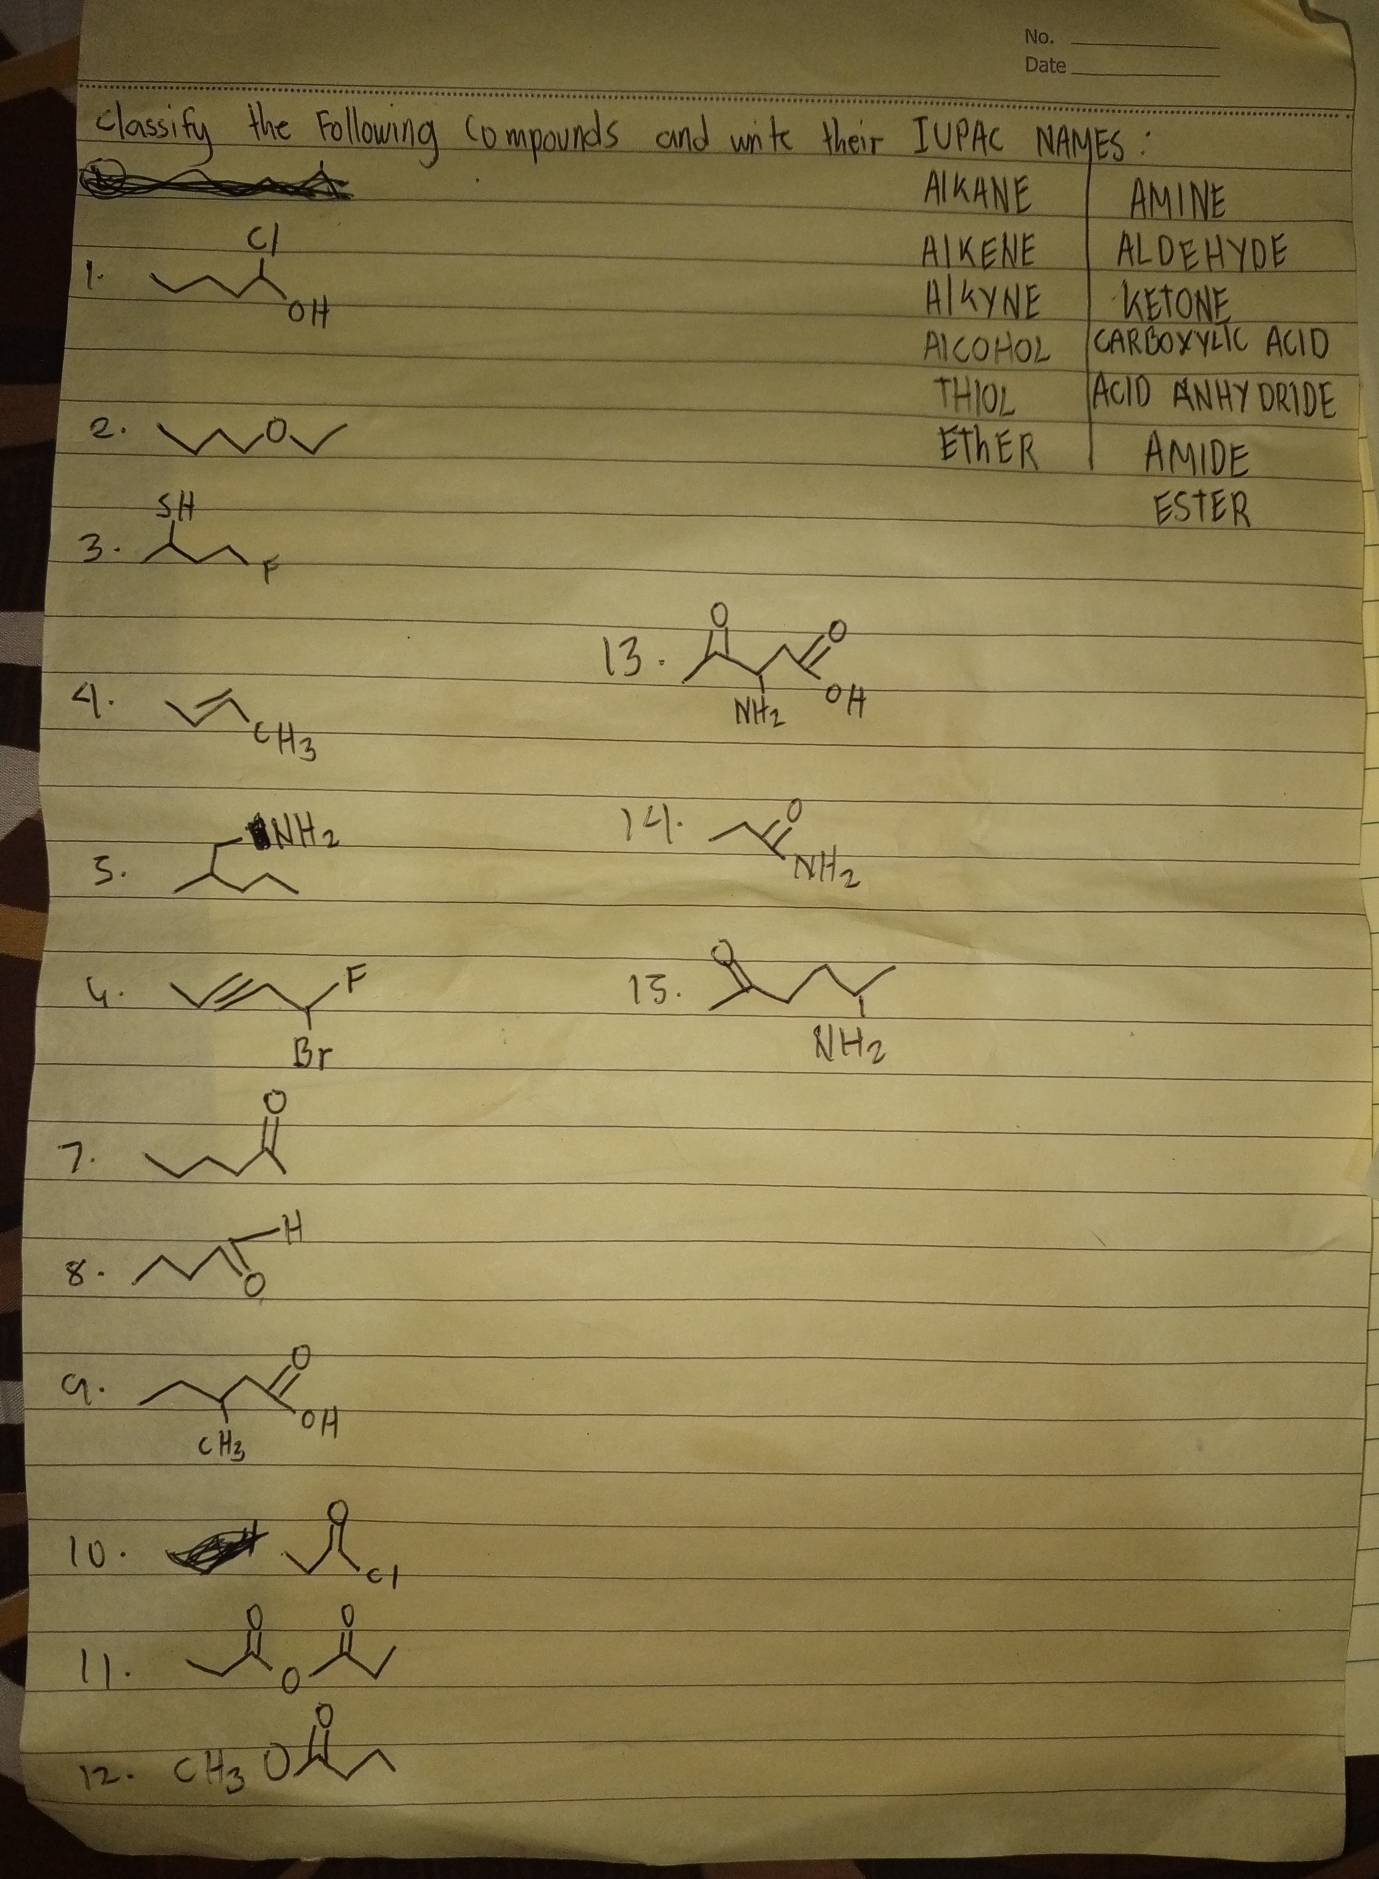 No.
Date
Classify the Following Compounds and write their IUPAC NAMES:
AlKANE AMINE
AlKENE ALDEHYDE
AlKYNE KETONE
AlCOHOL CARBOXYLIC ACID
THIOL ACID ANHYDRIDE
EThER AMIDE
ESTER
1. Cl
OH
2. O
3. SH
F
4. CH3
5. NH2
6. F
Br
7. O
8. H
O
9. O
OH
CH3
10. O
Cl
11. O O
O
12. CH3 O O
13. O O
NH2 OH
14. O
NH2
15. O
NH2